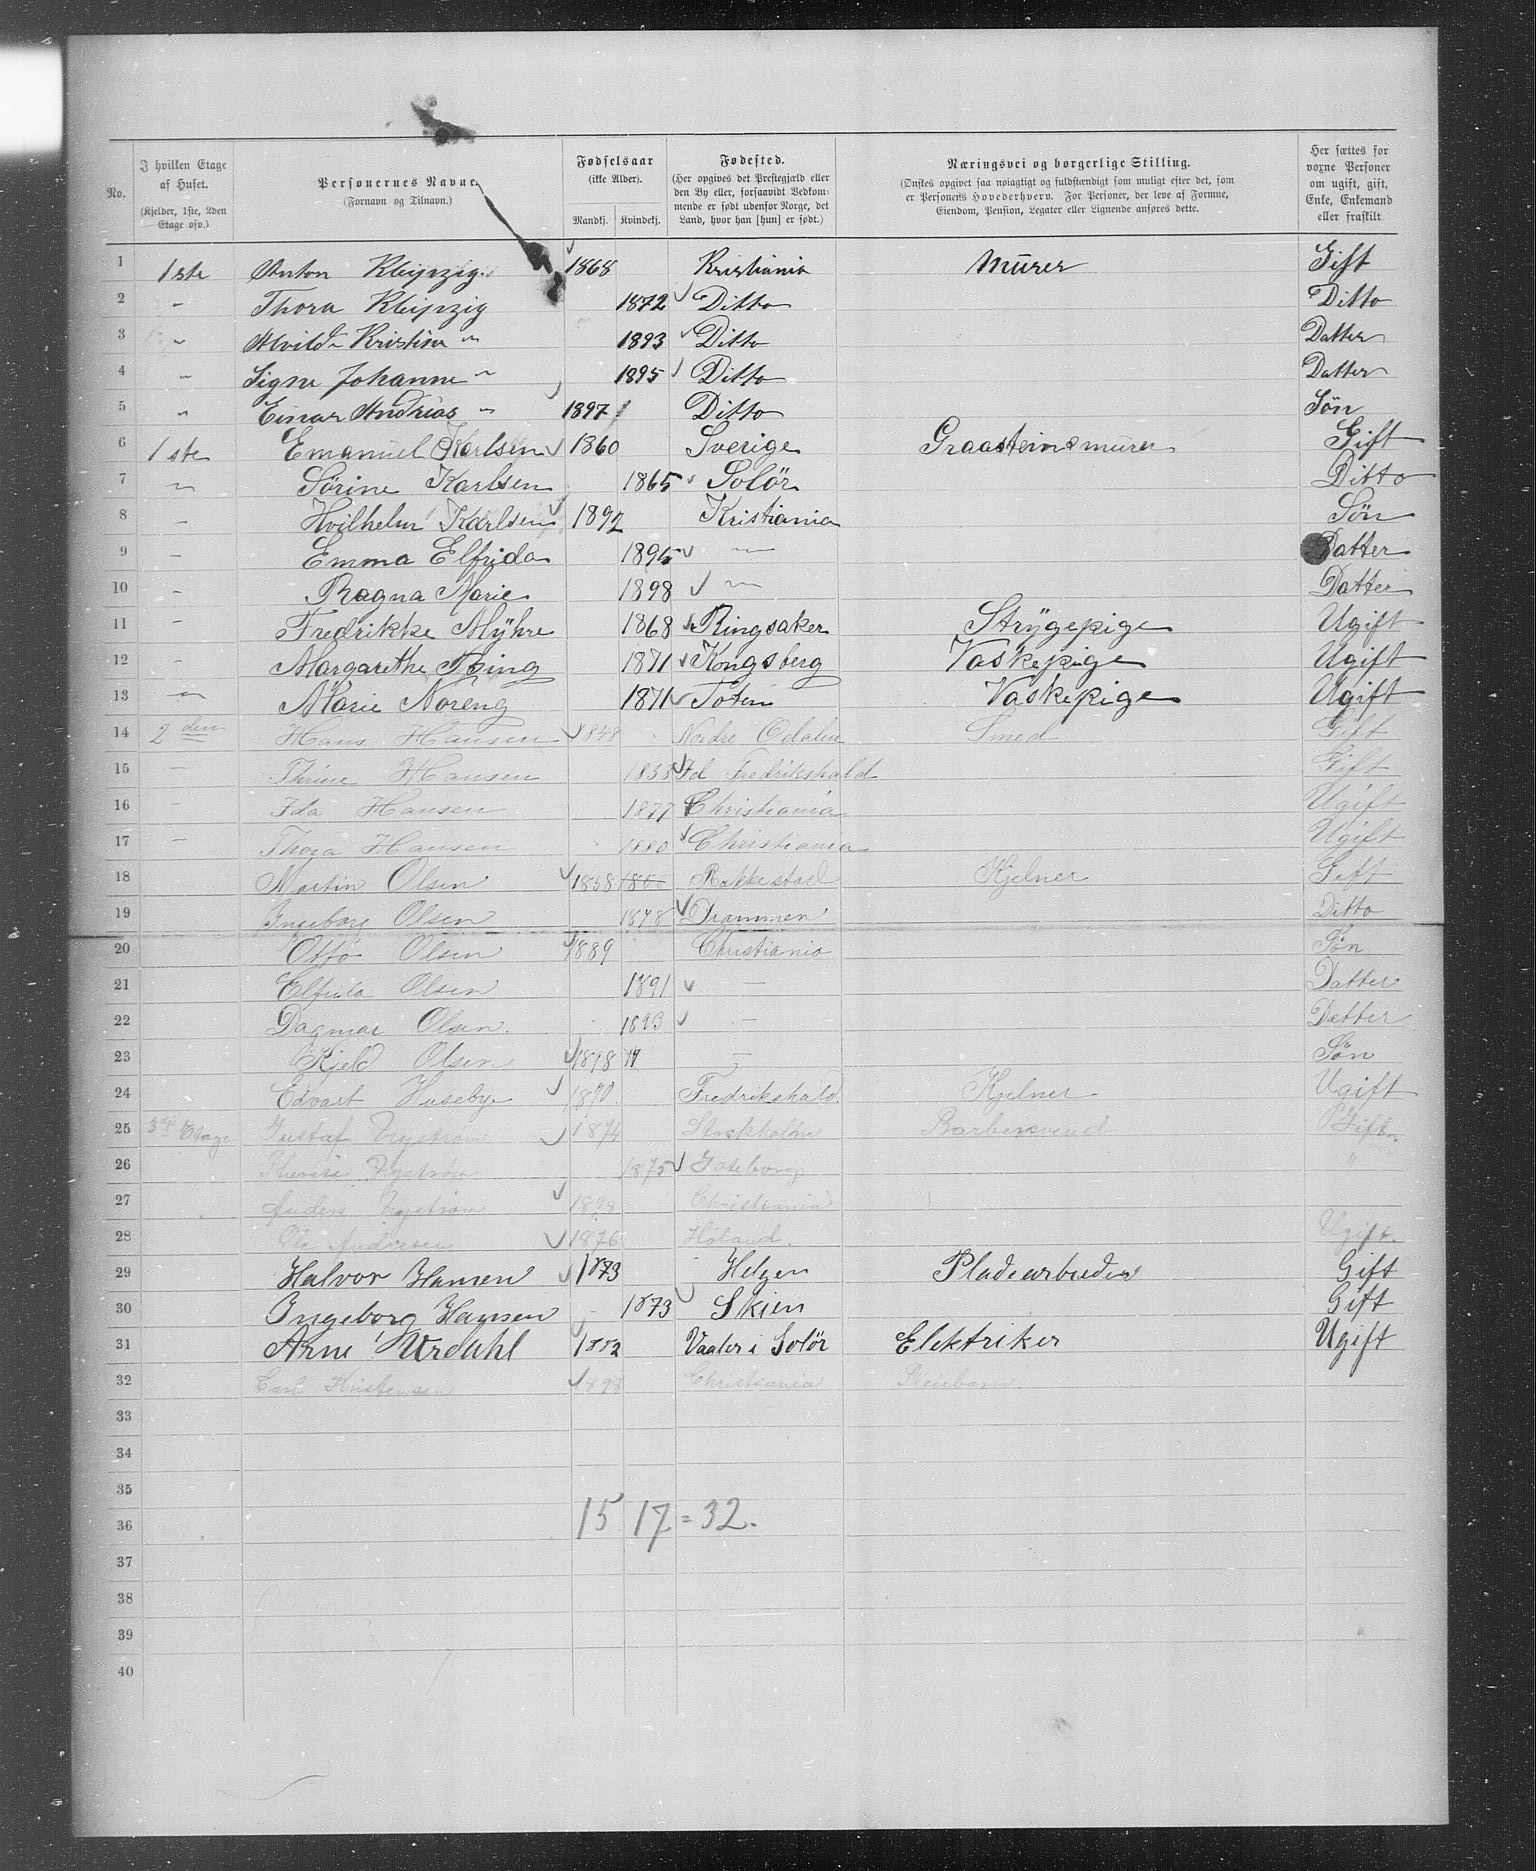 No.
I hvilken Etage af Huset.
(Kjelder, 1ste, 2den Etage osv.)
Personernes Navne.
(Fornavn og Tilnavn.)
Fødselsaar
(ikke Alder).
Mandkj. Kvindekj.
Fødested.
(Her opgives det Prestegjæld eller den By eller, forsaavidt Vedkommende er født udenfor Norge, det Land, hvor han [hun] er født.)
Næringsvei og borgerlige Stilling.
(Ønskes opgivet saa nøiagtigt og fuldstændigt som muligt efter det, som er Personens Hovederhverv. For Personer, der leve af Formue, Eiendom, Pension, Legater eller Lignende anføres dette.
Her sættes for voxne Personer om ugift, gift, Enke, Enkemand eller fraskilt
1 1ste Anton Kleipzig 1868 Kristiania Mūrer Gift
2 " Thora Kleipzig 1872 Ditto Ditto
3 " Alvilde Kristine " 1893 Ditto Datter
4 " Signe Johanne " 1895 Ditto Datter
5 " Einar Andrias " 1897 Ditto Søn
6 1ste Emanuel Karlsen 1860 Sverige Graasteinsmūrer Gift
7 " Sörine Karlsen 1865 Solör Ditto
8 " Hvilhelm Karlsen 1892 Kristiania Sön
9 " Emma Elfrida 1895 " Datter
10 " Ragna Marie 1898 " Datter
11 " Fredrikke Mÿhre 1868 Ringsaker Strÿgepige Ugift
12 " Margarethe 1871 Kongsberg Vaskepige Ugift
13 " Marie Noreng 1871 Toten Vaskepige Ugift
14 2den Hans Hansen 1848 Nordre Odalen Smed Gift
15 " Thrine Hansen 1853 Id Fredrikshald Gift
16 " Ida Hansen 1877 Christiania Ugift
17 " Thora Hansen 1880 Christiania Ugift
18 Martin Olsen 1858 Rakkestad Kjelner Gift
19 Ingeborg Olsen 1878 Drammen Ditto
20 Otto Olsen 1889 Christiania Søn
21 Elfrida Olsen 1891 — Datter
22 Dagmar Olsen. 1893 — Datter
23 Kjeld Olsen 1898 — Søn
24 Edvart Huseby 1870 Fredrikshald. Kjelner Ugift
25 3die Etage Gustaf Nystrøm 1874 Stockholm Barbersvend Gift
26 Nystrøm 1875 Gøteborg "
27 Anders Nystrøm 1898 Christiania
28 Ole Andresen 1876 Høland. Ugift.
29 Halvor Hansen 1873 Helgen Pladearbeider Gift
30 Ingeborg Hansen 1873 Skien Gift
31 Arne Urdahl 1882 Vaaler i Solör Elektriker Ugift
32 Carl Kristensen 1898 Christiania Pleiebarn.
33
34
35
36
15 17 = 32.
37
38
39
40